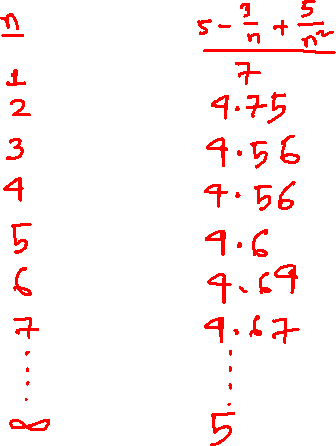 n 5 - 3/n + 5/n²
1 7
2 4.75
3 4.56
4 4.56
5 4.6
6 4.64
7 4.67
⋮ ⋮
∞ 5